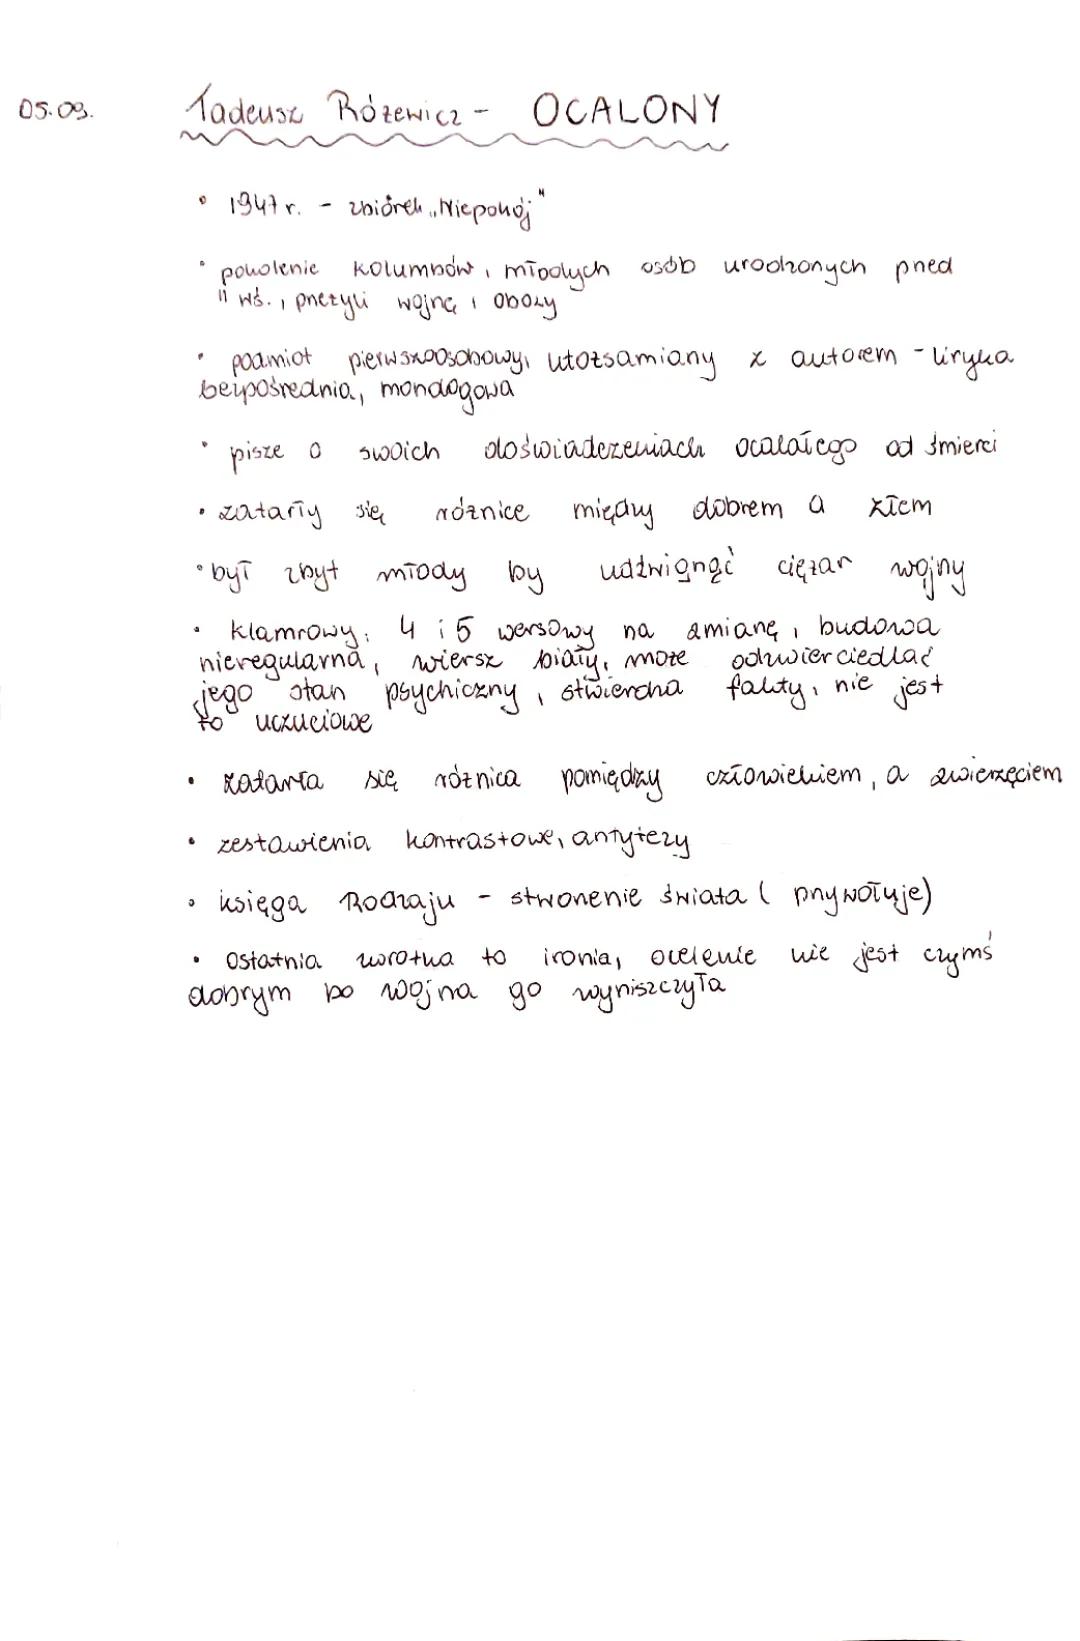 05.09. Tadeusz Różewicz - OCALONY
• 1947 r. - zbiórek „Niepokój"
• pokolenie Kolumbów, młodych osób urodzonych przed
II wś., przeżyli wojnę i obozy
• podmiot pierwszoosobowy, utożsamiany z autorem - liryka
bezpośrednia, monologowa
• pisze o swoich doświadczeniach ocalałego od śmierci
• zatarły się różnice między dobrem a złem
• był zbyt młody by udźwignąć ciężar wojny
• klamrowy, 4 i 5 wersowy na zmianę, budowa
nieregularna, wiersz biały, może odzwierciedlać
jego stan psychiczny, stwierdza fakty, nie jest
to uczuciowe
• zatarła się różnica pomiędzy człowiekiem, a zwierzęciem
• zestawienia kontrastowe, antytezy
• księga Rodzaju - stworzenie świata ( przywołuje)
• Ostatnia zwrotka to ironia, ocelenie nie jest czymś
dobrym bo wojna go wyniszczyła